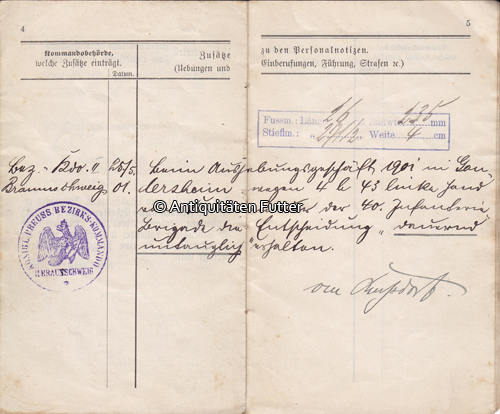 4
Kommandobehörde,
welche Zusätze einträgt.
Datum.
Zusätze
(Uebungen und
5
zu den Personalnotizen.
Einberufungen, Führung, Strafen ꝛc.)
Fussm.: Länge 26 Ballweite 235 mm
Stieflm.: " Weite 4 cm
Bez.-Kdo. II 25/5. beim Aushebungsgeschäft 1901 in Gan-
Braunschweig 01. dersheim wegen 4 b 43 linke Hand
der 40. Infanterie
Brigade die Entscheidung „dauernd
untauglich" erhalten.
von
KÖNIGL. PREUSS. BEZIRKS-KOMMANDO
II BRAUNSCHWEIG
© Antiquitäten Futter